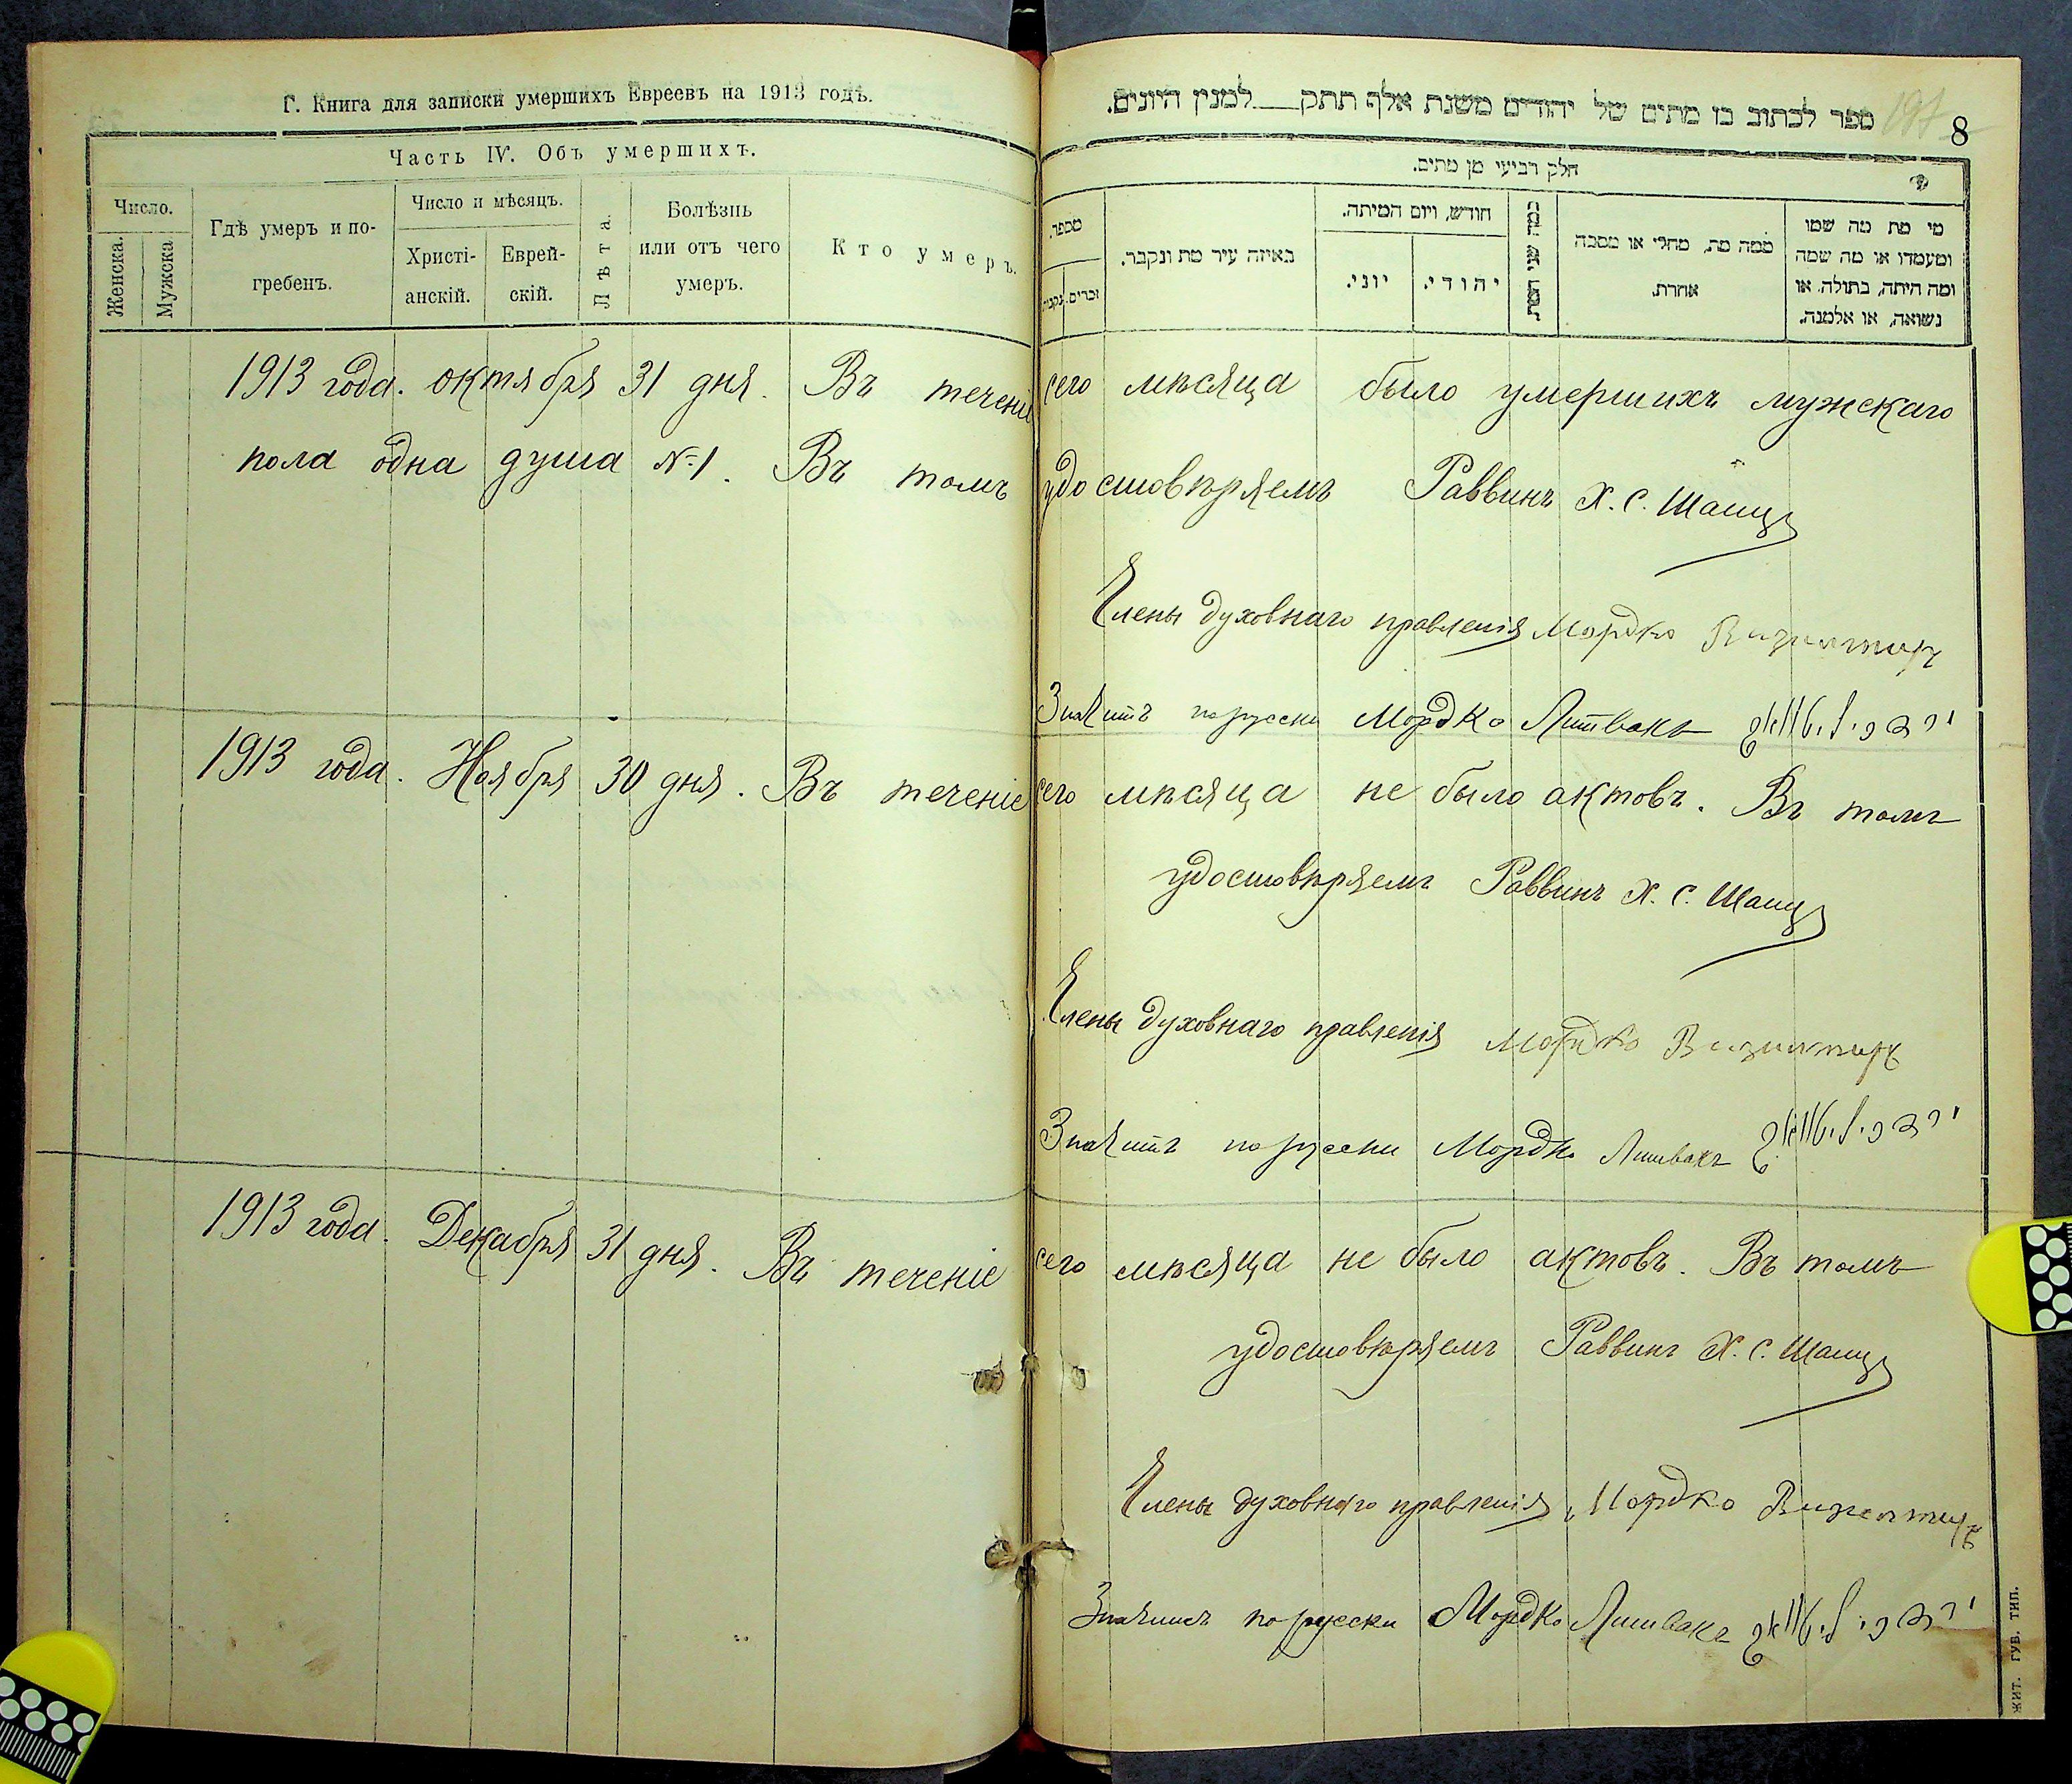 Г. Книга для записки умершихъ Евреевъ на 1913 годъ.
Часть IV. Объ умершихъ.
Число.
Женска.
Мужска
Гдѣ умеръ и по-
гребенъ.
Число и мѣсяцъ.
Христі-
анскій.
Еврей-
скій.
Лѣта.
Болѣзнь
или отъ чего
умеръ.
Кто умеръ.
ספר לכתוב בו מתים של יהודים משנת אלף תתק למנין היונים.
197
8
חלק רביעי מן מתים.
מספר.
זכרים.
באיזה עיר מת ונקבר.
חודש, ויום המיתה.
יוני.
יהודי.
כמה שני המת
ממה מת, מחלי או מסבה
אחרת.
מי מת מה שמו
ומעמדו או מה שמה
ומה היתה, בתולה או
נשואה, או אלמנה.
1913 года. октября 31 дня. Въ теченіе сего мѣсяца было умершихъ мужскаго
пола одна душа №1. Въ томъ удостовѣряемъ Раввинъ Х. С.
Члены духовнаго правленія Мордко
Значитъ по русски Мордко Литвакъ
1913 года. Ноября 30 дня. Въ теченіе сего мѣсяца не было актовъ. Въ томъ
удостовѣряемъ Раввинъ Х. С.
Члены духовнаго правленія Мордко
Значитъ по русски Мордко Литвакъ
1913 года. Декабря 31 дня. Въ теченіе сего мѣсяца не было актовъ. Въ томъ
удостовѣряемъ Раввинъ Х. С.
Члены духовнаго правленія Мордко
Значитъ по русски Мордко Литвакъ
ЖИТ. ГУБ. ТИП.